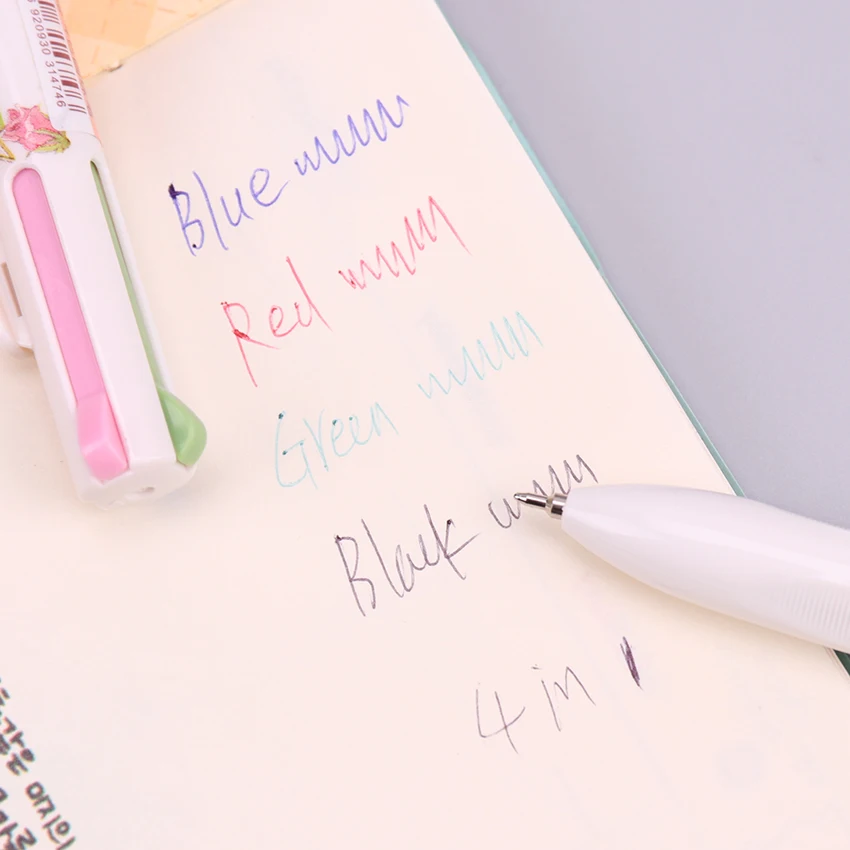 920930 314746
Blue
Red
Green
Black
4 in 1